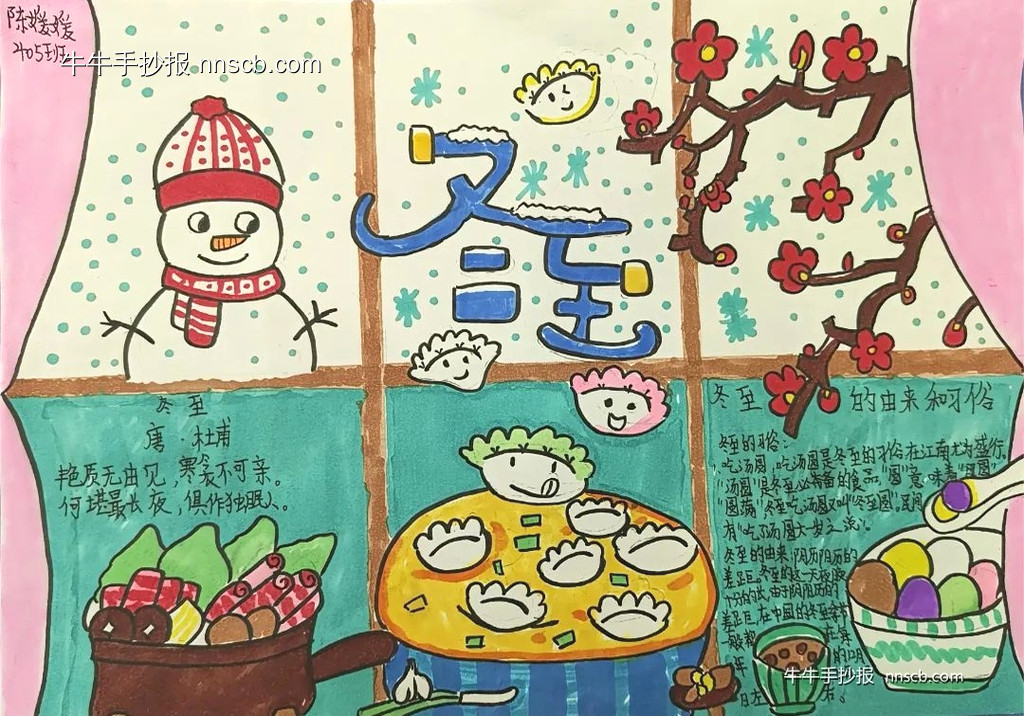 陈媛媛
405班
牛牛手抄报 nnscb.com
冬至
冬至
唐·杜甫
艳质无由见，寒衾不可亲。
何堪最长夜，俱作独眠人。
冬至的由来和习俗
冬至的习俗：
吃汤圆，吃汤圆是冬至的习俗在江南尤为盛行。
"汤圆"是冬至必备的食品，"圆"意味着"团圆"
"圆满"冬至吃汤圆又叫"冬至圆"。民间
有"吃了汤圆大一岁之说"。
冬至的由来：阴历阳历的
差距。冬至的这一天夜
十分的
差距，在中国的冬至
一般
年 的12月
日左 右。
牛牛手抄报 nnscb.com